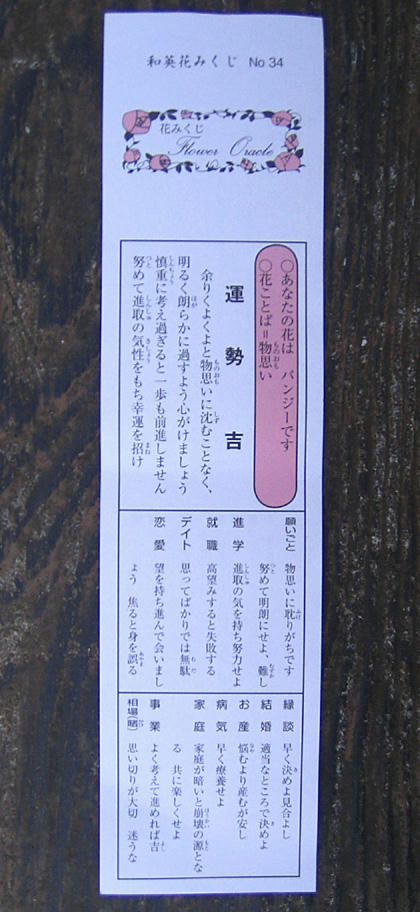 和英花みくじ No 34
花みくじ
Flower Oracle
○あなたの花は パンジーです
○花ことば＝物思い
運勢 吉
余りくよくよと物思いに沈むことなく、
明るく朗らかに過すよう心がけましょう
慎重に考え過ぎると一歩も前進しません
努めて進取の気性をもち幸運を招け
願いごと 物思いに耽りがちです
努めて明朗にせよ、難し
進学 進取の気を持ち努力せよ
就職 高望みすると失敗する
デイト 思ってばかりでは無駄
恋愛 望を持ち進んで会いまし
ょう 焦ると身を誤る
縁談 早く決めよ見合よし
結婚 適当なところで決めよ
お産 悩むより産むが安し
病気 早く療養せよ
家庭 家庭が暗いと崩壊の源とな
る 共に楽しくせよ
事業 よく考えて進めれば吉
相場(賭) 思い切りが大切 迷うな